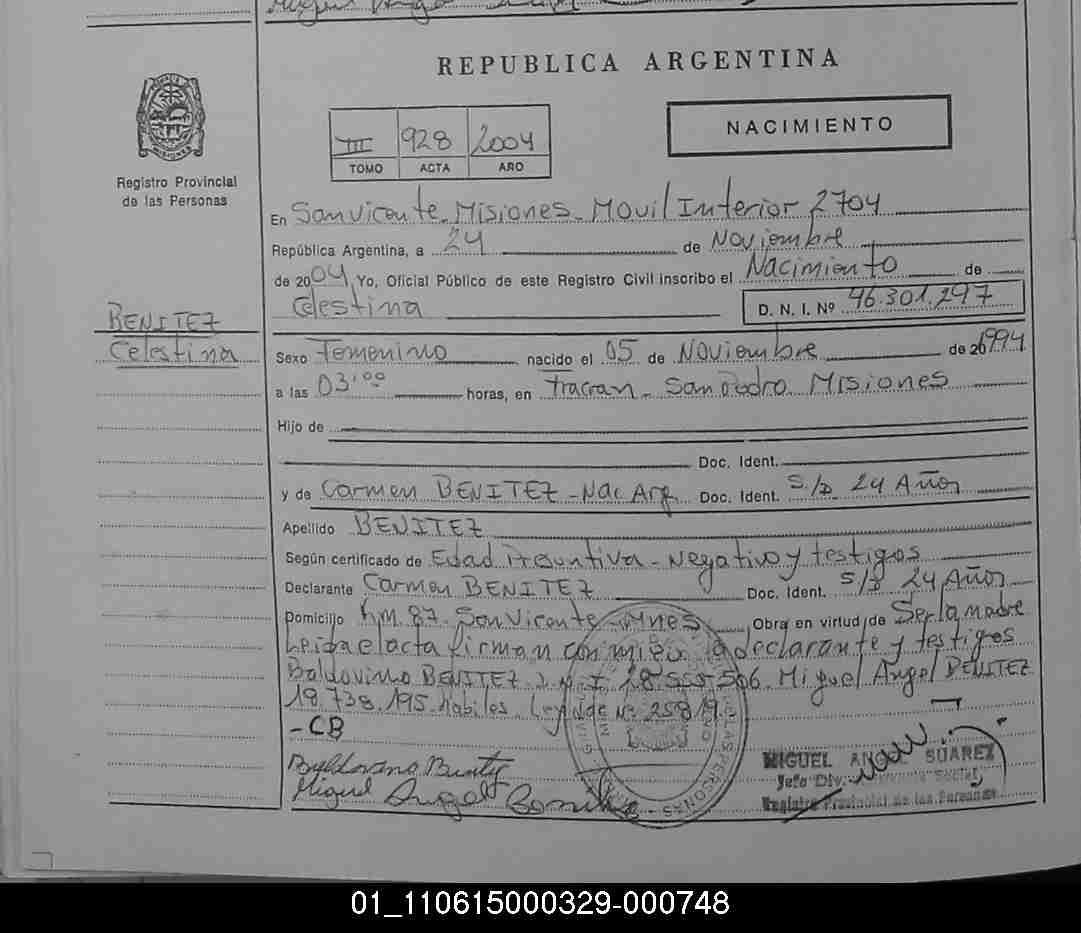 REPUBLICA ARGENTINA
NACIMIENTO
III 928 2004
TOMO ACTA AÑO
Registro Provincial
de las Personas
En San Vicente Misiones Movil Interior 2704
República Argentina, a 24 de Noviembre
de 2004 Yo, Oficial Público de este Registro Civil inscribo el Nacimiento de
Celestina D. N. I. Nº 46.301.297
BENITEZ
Celestina
Sexo Femenino nacido el 05 de Noviembre de 20 1994
a las 03'00 horas, en Fracran - San Pedro Misiones
Hijo de
Doc. Ident.
y de Carmen BENITEZ - Nac Arg Doc. Ident. S/D 24 Años
Apellido BENITEZ
Según certificado de Edad Presuntiva - Negativo y testigos
Declarante Carmen BENITEZ Doc. Ident. S/D 24 Años
Domicilio Km. 87. San Vicente - Mnes Obra en virtud de Ser la madre
Leida el acta firman conmigo la declarante y testigos
Baldovino BENITEZ D.N.I. 18.555.506. Miguel Angel BENITEZ
18.738.195. habiles. Ley Nº 25819.
- CB
Miguel Angel
MIGUEL ANGEL SUAREZ
Jefe Div.
Registro Provincial de las Personas
01_110615000329-000748